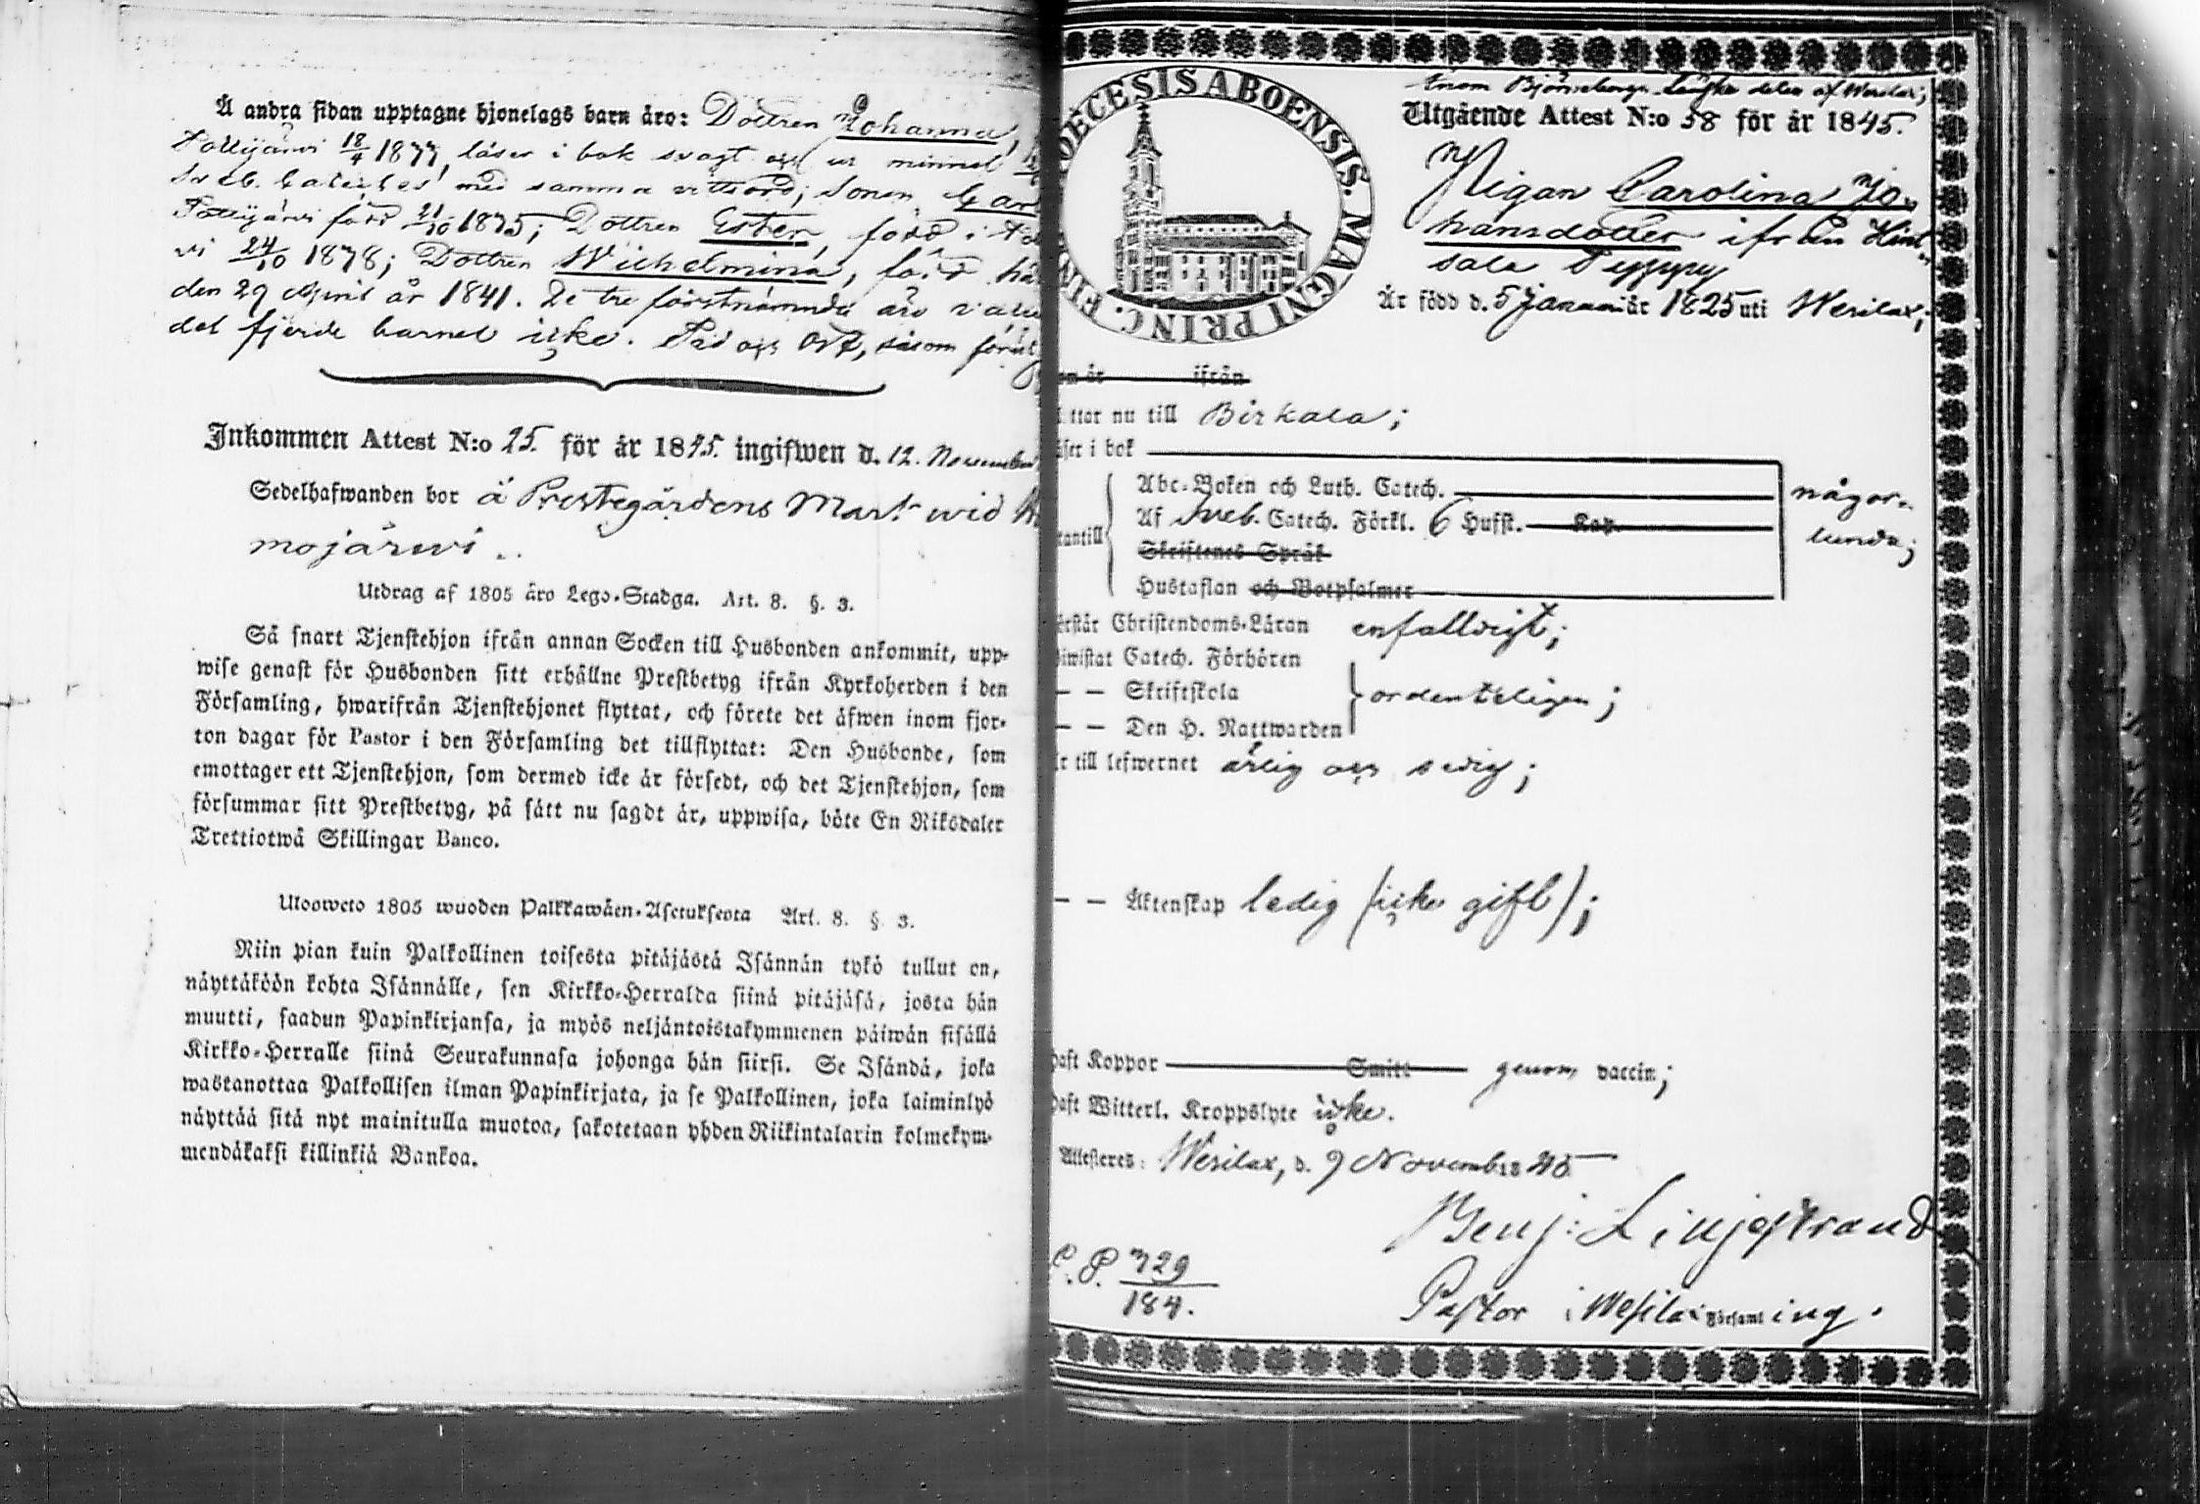 Å andra sidan upptagne hjonelags barn äro: Dottren Johanna,
läser i bok svagt och ur minnet
med samma vittsord; Sonen
född 21/10 1875; Dottren Ester, född i
24/10 1878; Dottren Wilhelmina, född
den 29 April år 1841. De tre förstnämnda äro
det fjerde barnet icke. Tid och Ort, såsom
Inkommen Attest N:o 25. för år 1845. ingifwen d. 12. November
Sedelhafwanden bor å Prestegårdens Mark wid
mojärwi.
Utdrag af 1805 års Lego-Stadga. Art. 8. §. 3.
Så snart Tjenstehjon ifrån annan Socken till Husbonden ankommit, upp-
wise genast för Husbonden sitt erhållne Prestbetyg ifrån Kyrkoherden i den
Församling, hwarifrån Tjenstehjonet flyttat, och förete det äfwen inom fjor-
ton dagar för Pastor i den Församling det tillflyttat: Den Husbonde, som
emottager ett Tjenstehjon, som dermed icke är försedt, och det Tjenstehjon, som
försummar sitt Prestbetyg, på sätt nu sagdt är, uppwisa, böte En Riksdaler
Trettiotwå Skillingar Banco.
Ulosweto 1805 wuoden Palkkawäen-Asetuksesta Art. 8. § 3.
Niin pian kuin Palkollinen toisesta pitäjästä Isännän tykö tullut on,
näyttäköön kohta Isännälle, sen Kirkko-Herralda siinä pitäjäsä, josta hän
muutti, saadun Papinkirjansa, ja myös neljäntoistakymmenen päiwän sisällä
Kirkko-Herralle siinä Seurakunnasa johonga hän siirsi. Se Isändä, joka
wastanottaa Palkollisen ilman Papinkirjata, ja se Palkollinen, joka laiminlyö
näyttää sitä nyt mainitulla muotoa, sakotetaan yhden Riikintalarin kolmekym-
mendäkaksi killinkiä Bankoa.
DECESIS ABOENSIS. MAGNI PRINC. FIN
Inom Björneborgs delen af Wesilax;
Utgående Attest N:o 58 för år 1845.
Pigan Carolina Jo-
hansdotter ifrån
År född d. 5 Januari år 1825 uti Wesilax;
om år ifrån
ttar nu till Birkala;
äser i bok
Abc-Boken och Luth. Catech. någor-
Af Sveb. Catech. Förkl. 6 Hufst. Kap. lunda;
tantill Skriftenes Språk
Hustaflan och Botpsalmer
örstår Christendoms-Läran enfalldigt;
iwistat Catech. Förhören
— — Skriftskola ordenteligen;
— — Den H. Nattwarden
r till lefwernet ärlig och sedig;
— — Äktenskap ledig (icke gift);
haft Koppor Smitt genom vaccin;
haft Witterl. Kroppslyte icke.
Attesteres: Wesilax, d. 9 Novemb. 1845
Benj: Liljestrand
C. P. 329/184. Pastor i Wesilax Församling.